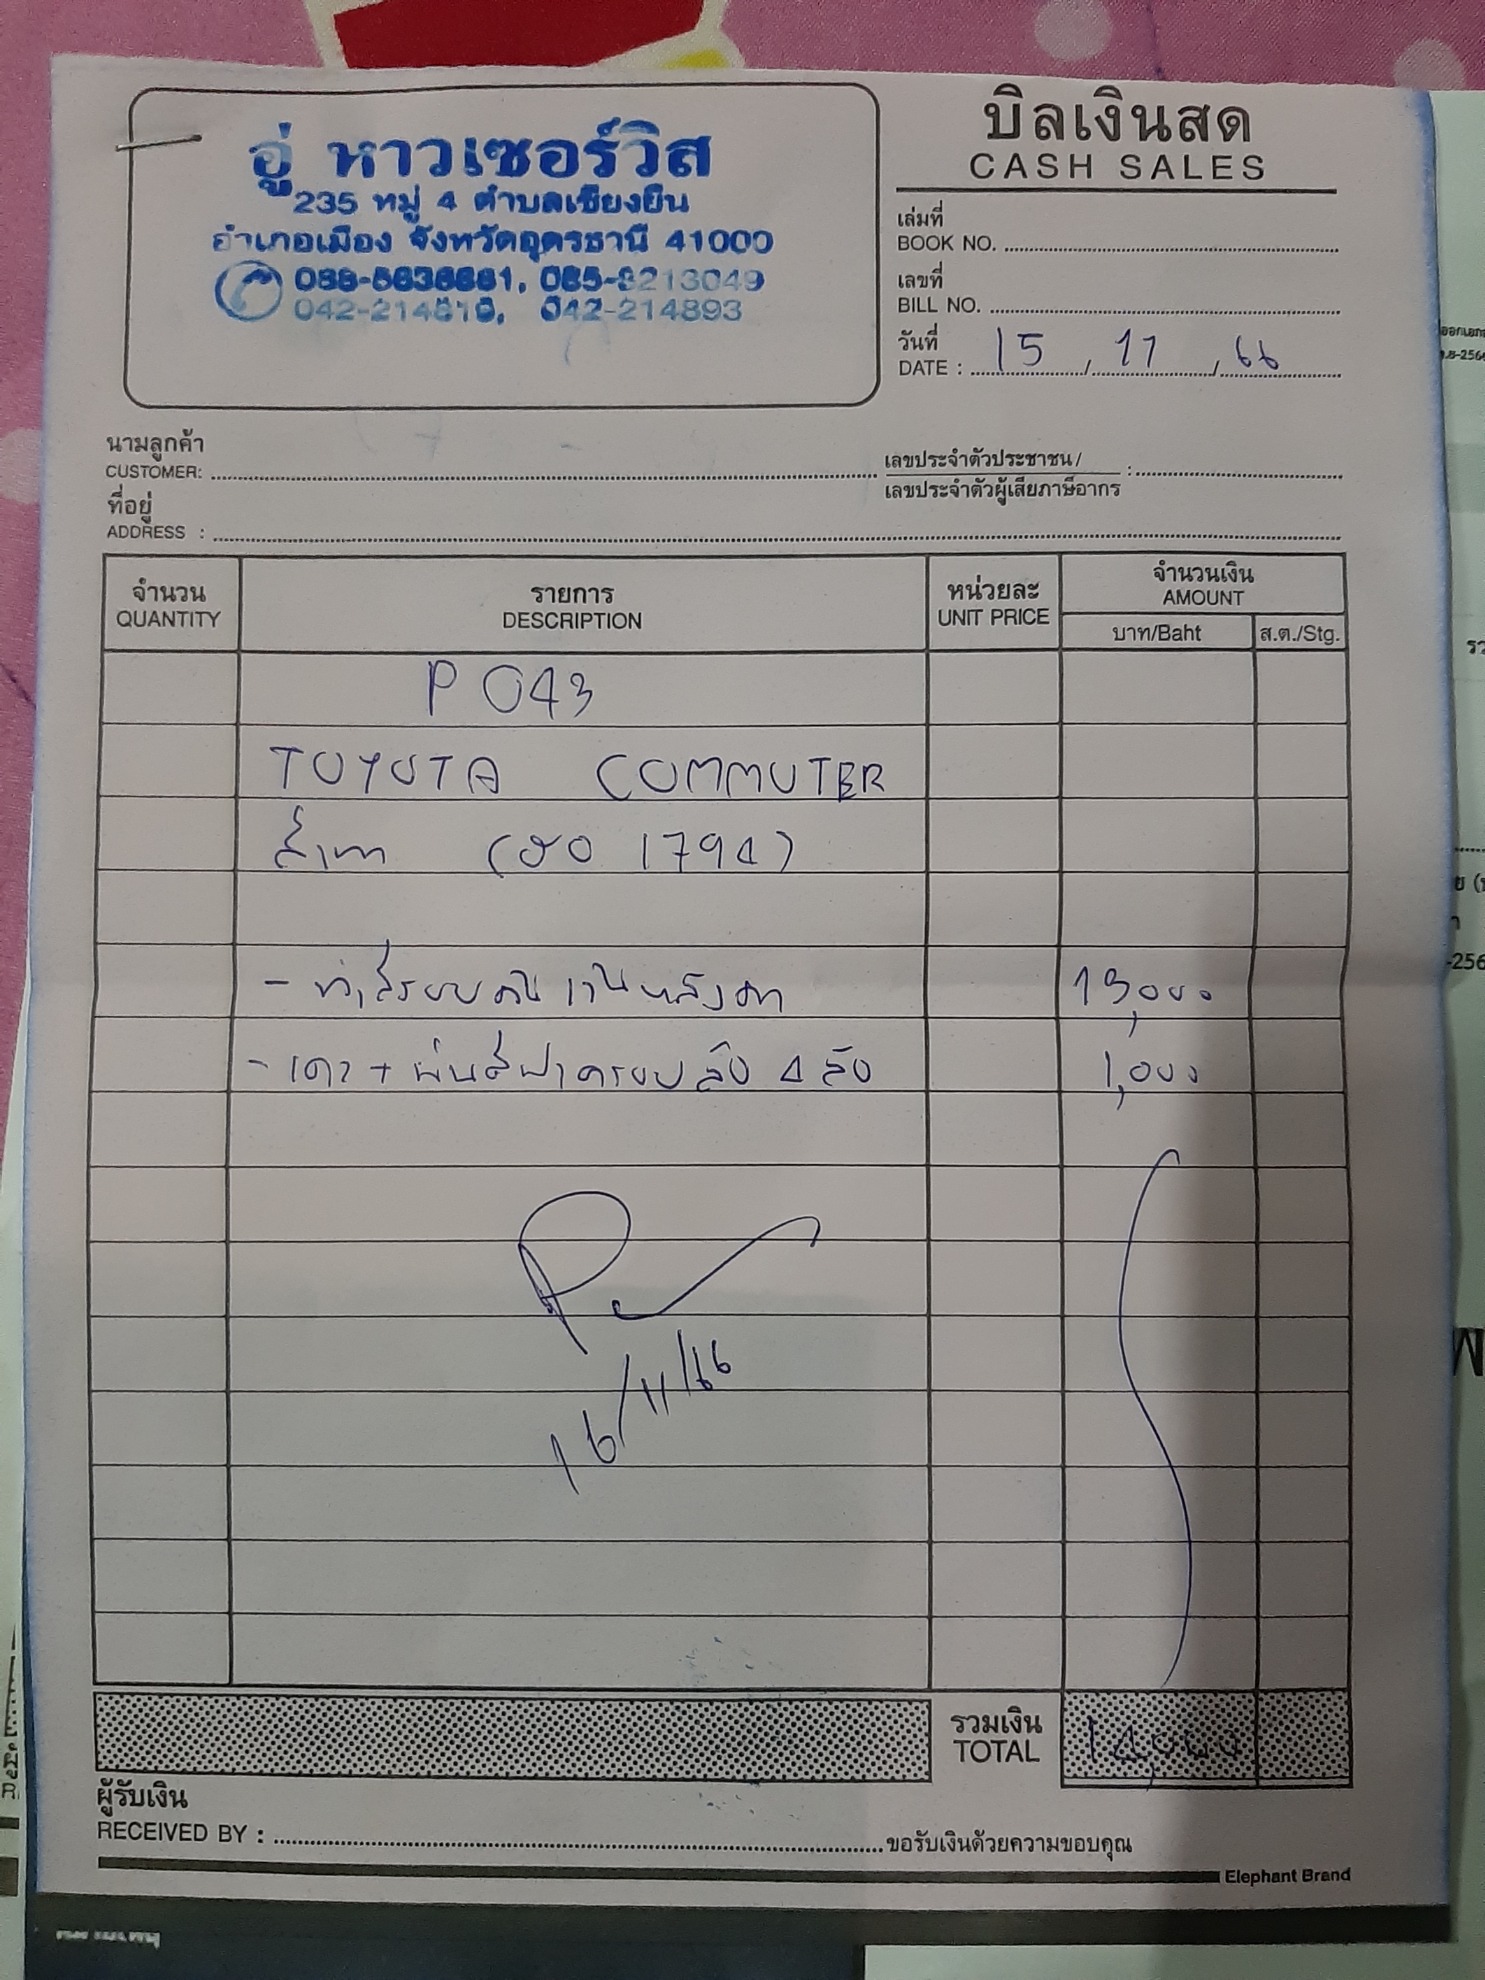 อู่ หาวเซอร์วิส
235 หมู่ 4 ตำบลเชียงยืน
อำเภอเมือง จังหวัดอุดรธานี 41000
042-214893
บิลเงินสด
CASH SALES
เล่มที่
BOOK NO.
เลขที่
BILL NO.
วันที่
DATE : 15 / 11 / 66
นามลูกค้า
CUSTOMER:
เลขประจำตัวประชาชน /
เลขประจำตัวผู้เสียภาษีอากร :
ที่อยู่
ADDRESS :
จำนวน รายการ หน่วยละ จำนวนเงิน
QUANTITY DESCRIPTION UNIT PRICE AMOUNT
บาท/Baht ส.ต./Stg.
P 043
TOYOTA COMMUTER
สีเทา (ฮอ 1794)
- ทำสีรอบคัน เว้นหลังคา 13,000
- เคาะ + พ่นสีฝาครอบล้อ 4 ล้อ 1,000
16/11/66
รวมเงิน
TOTAL 14,000
ผู้รับเงิน
RECEIVED BY : ขอรับเงินด้วยความขอบคุณ
Elephant Brand